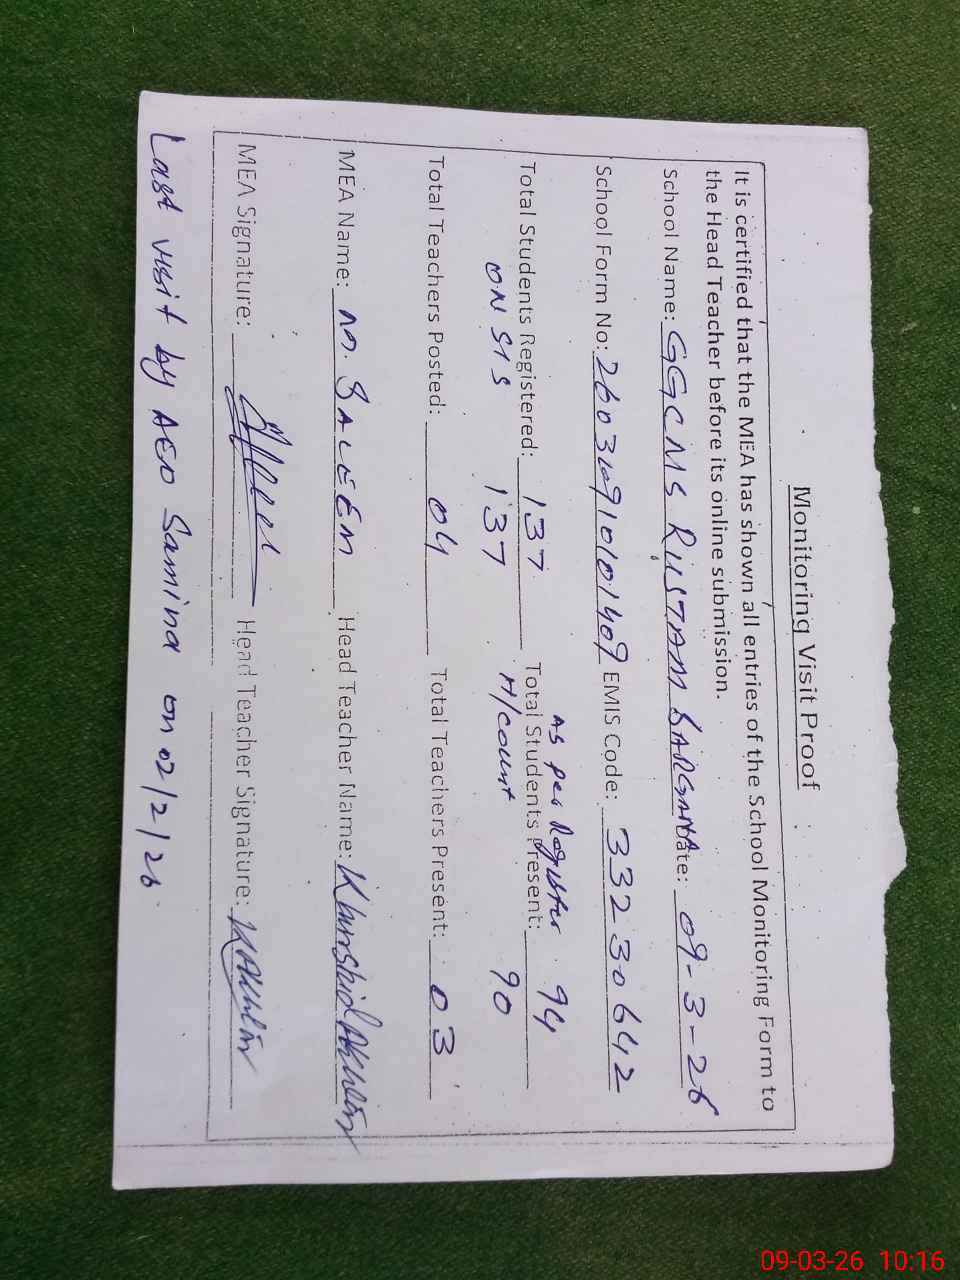 Monitoring Visit Proof
It is certified that the MEA has shown all entries of the School Monitoring Form to
the Head Teacher before its online submission.
School Name: GGCMS RUSTAM SARGANA Date: 09-3-26
School Form No: EMIS Code: 33230642
As per Register
Total Students Registered: 137 Total Students Present: 94
ON SIS 137 H/count 90
Total Teachers Posted: 04 Total Teachers Present: 03
MEA Name: M. SALEEM Head Teacher Name: Khurshid Akhtar
MEA Signature: Head Teacher Signature: KAkhtar
Last visit by AEO Samina on 02/2/26
09-03-26 10:16